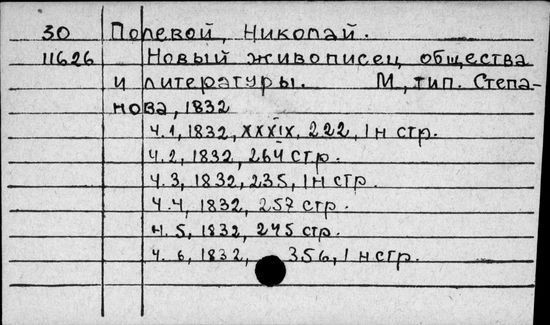 30 Полевой, Николай.
11626 Новый живописец общества
и литературы. М., тип. Степа-
нова, 1832
Ч. 1, 1832, XXXIX, 222, 1 н стр.
Ч. 2, 1832, 264 стр.
Ч. 3, 1832, 235, 1 н стр.
Ч. 4, 1832, 257 стр.
Ч. 5, 1832, 245 стр.
Ч. 6, 1832, 356, 1 н стр.